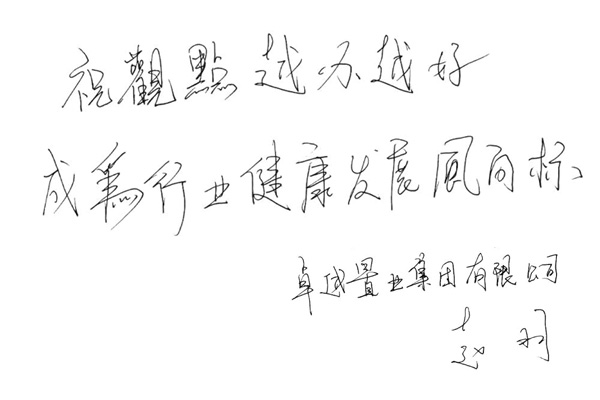 祝觀點越办越好
成為行业健康发展風向标
卓越置业集团有限公司
赵